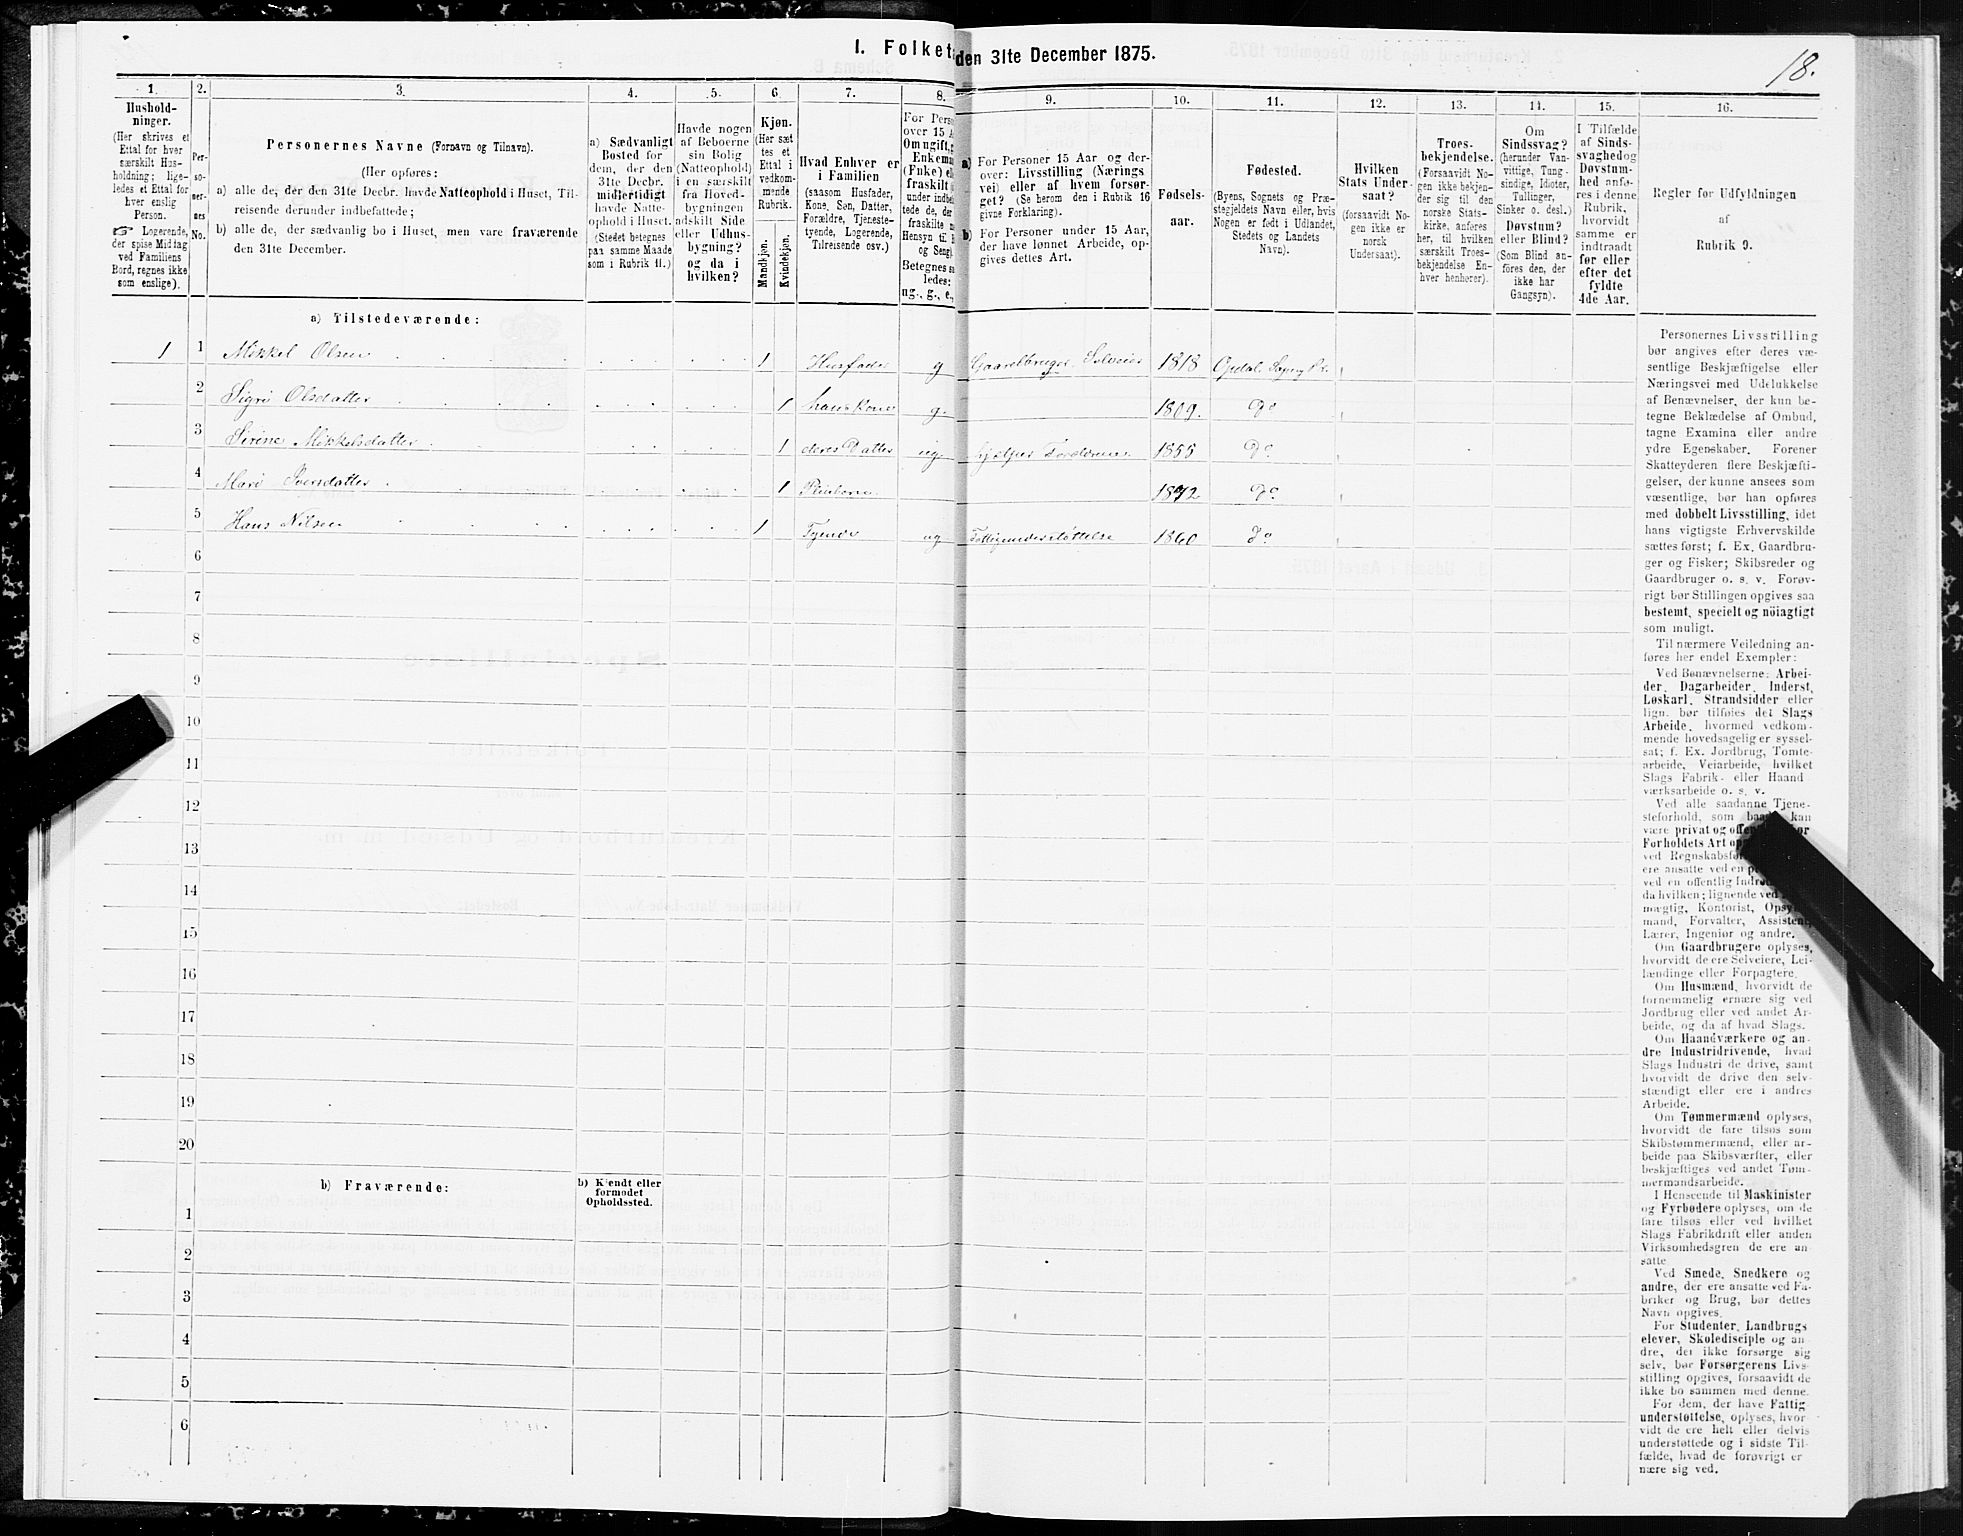 18.
I. Folket
den 31te December 1875.
1.
2.
3.
4.
5.
6.
7.
8.
9.
10.
11.
12.
13.
14.
15.
16.
Hushold-
ninger.
(Her skrives et
Ettal for hver
særskilt Hus-
holdning; lige-
ledes et Ettal for
hver enslig
Person.
☞ Logerende,
der spise Middag
ved Familiens
Bord, regnes ikke
som enslige).
Per-
so-
ner-
nes
No.
Personernes Navne (Fornavn og Tilnavn).
(Her opføres:
a) alle de, der den 31te Decbr. havde Natteophold i Huset, Til-
reisende derunder indbefattede;
b) alle de, der sædvanlig bo i Huset, men vare fraværende
den 31te December.
a) Sædvanligt
Bosted for
dem, der den
31te Decbr.
midlertidigt
havde Natte-
ophold i Huset.
(Stedet betegnes
paa samme Maade
som i Rubrik 11.)
Havde nogen
af Beboerne
sin Bolig
(Natteophold)
i en særskilt
fra Hoved-
bygningen
adskilt Side
eller Udhus-
bygning?
og da i
hvilken?
Kjøn.
(Her sæt
tes et
Ettal i
vedkom-
mende
Rubrik.
Mandkjøn.
Kvindekjøn.
Hvad Enhver er
i Familien
(saasom Husfader,
Kone, Søn, Datter,
Forældre, Tjeneste-
tyende, Logerende,
Tilreisende osv.)
For Perso
over 15 A
Om ugift, g
Enkema
(Enke) el
fraskilt
under indbe
tede de, de
fraskilte
Hensyn til
og Seng).
Betegnes s
ledes:
ug., g., e.,
a) For Personer 15 Aar og der-
over: Livsstilling (Nærings
vei) eller af hvem forsør-
get? (Se herom den i Rubrik 16
givne Forklaring).
b) For Personer under 15 Aar,
der have lønnet Arbeide, op-
gives dettes Art.
Fødsels-
aar.
Fødested.
(Byens, Sognets og Præ-
stegjeldets Navn eller, hvis
Nogen er født i Udlandet,
Stedets og Landets
Navn).
Hvilken
Stats Under-
saat?
(forsaavidt No-
gen ikke er
norsk
Undersaat).
Troes-
bekjendelse.
(Forsaavidt No-
gen ikke bekjen-
der sig til den
norske Stats-
kirke, anføres
her, til hvilken
særskilt Troes-
bekjendelse En-
hver henhører).
Om
Sindssvag?
(herunder Van-
vittige, Tung-
sindige, Idioter,
Tullinger,
Sinker o. desl.)
Døvstum?
eller Blind?
(Som Blind an-
føres den, der
ikke har
Gangsyn).
I Tilfælde
af Sinds-
svaghed og
Døvstum-
hed anfø-
res i denne
Rubrik,
hvorvidt
samme er
indtraadt
før eller
efter det
fyldte
4de Aar.
Regler for Udfyldningen
af
Rubrik 9.
a) Tilstedeværende:
1 1 Mikkel Olsen 1 Husfader g Gaardbruger Selveier 1818 Opdal Sogn
2 Sigri Olsdatter 1 hans Kone g. 1809. Do
3 Sirine Mikkelsdatter 1 deres Datter ug hjelper Forældrene 1855 Do
4 Mari 1 1872 Do
5 Hans Nilsen 1 Tyende ug Fattigunderstøttelse 1860 Do
6
7
8
9
10
11
12
13
14
15
16
17
18
19
20
b) Fraværende:
b) Kjendt eller
formodet
Opholdssted.
1
2
3
4
5
6
Personernes Livsstilling
bør angives efter deres væ-
sentlige Beskjæftigelse eller
Næringsvei med Udelukkelse
af Benævnelser, der kun be-
tegne Beklædelse af Ombud,
tagne Examina eller andre
ydre Egenskaber. Forener
Skatteyderen flere Beskjæfti-
gelser, der kunne ansees som
væsentlige, bør han opføres
med dobbelt Livsstilling, idet
hans vigtigste Erhvervskilde
sættes først; f. Ex. Gaardbru-
ger og Fisker; Skibsreder og
Gaardbruger o. s. v. Forøv-
rigt bør Stillingen opgives saa
bestemt, specielt og nöiagtigt
som muligt.
Til nærmere Veiledning an-
føres her endel Exempler:
Ved Benævnelserne: Arbei-
der, Dagarbeider, Inderst,
Løskarl, Strandsidder eller
lign. bør tilføies det Slags
Arbeide, hvormed vedkom-
mende hovedsagelig er syssel-
sat; f. Ex. Jordbrug, Tomte-
arbeide, Veiarbeide, hvilket
Slags Fabrik- eller Haand
værksarbeide o. s. v.
Ved alle saadanne Tjene-
steforhold, som kan
være privat og
Forholdets Art
ved
ere ansatte ved en
ved en offentlig
da hvilken; lignende ved
mægtig, Kontorist,
mand, Forvalter, Assistent,
Lærer, Ingeniør og andre.
Om Gaardbrugere oplyses,
hvorvidt de ere Selveiere, Lei-
lændinge eller Forpagtere.
Om Husmænd, hvorvidt de
fornemmelig ernære sig ved
Jordbrug eller ved andet Ar-
beide, og da af hvad Slags.
Om Haandværkere og an-
dre Industridrivende, hvad
Slags Industri de drive, samt
hvorvidt de drive den selv-
stændigt eller ere i andres
Arbeide.
Om Tømmermænd oplyses,
hvorvidt de fare tilsøs som
Skibstømmermænd, eller ar-
beide paa Skibsværfter, eller
beskjæftiges ved andet Tøm-
mermandsarbeide.
I Henseende til Maskinister
og Fyrbødere oplyses, om de
fare tilsøs eller ved hvilket
Slags Fabrikdrift eller anden
Virksomhedsgren de ere an-
satte
Ved Smede, Snedkere og
andre, der ere ansatte ved Fa-
briker og Brug, bør dettes
Navn opgives.
For Studenter, Landbrugs
elever, Skoledisciple og an-
dre, der ikke forsørge sig
selv, bør Forsørgerens Livs-
stilling opgives, forsaavidt de
ikke bo sammen med denne.
For dem, der have Fattig
understøttelse, oplyses, hvor-
vidt de ere helt eller delvis
understøttede og i sidste Til-
fælde, hvad de forøvrigt er
nære sig ved.